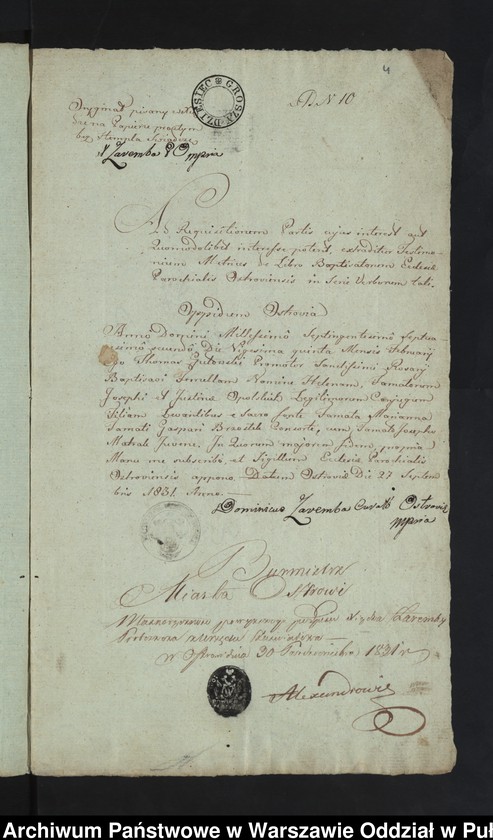 4
DZIESIĘC GROSZY
AD N 10
Oryginał pisany
na Papierze prostym
bez Stempla
X Zaremba P O mpria
Ad Requisitionem Partis cujus interest aut
Quomodolibet interesse poterit, extraditur Testimo-
nium Metrices de Libro Baptisatorum Ecclesiæ
Parochialis Ostroviensis in Serie Verborum tali.
Oppidum Ostrovia
Anno Domini Millesimo Septingentesimo Septua-
gesimo secundo Die Vigesima quinta Mensis February
Ego Thomas Promotor Sanctissimi Rosary
Baptisavi Puellam Nomine Helenam, Famatorum
Josephi et Justinæ Opolskich Legitimorum Conjugum
Filiam Levantibus e Sacro fonte Famata Marianna
Famati Gaspari Consorte, cum Famato Josepho
Juvene. In Quorum majorem fidem, propria
Manu me subscribo, et Sigillum Ecclesiæ Parochialis
Ostroviensis appono. Datum Ostroviæ Die 27 Septem-
bris 1831 Anno.
Dominicus Zaremba Ostrovie
mpria
Burmistrz
Miasta Ostrowi
podpisu Xiędza Zaremby
Proboszcza
w Ostrowi dnia 30 Października 1831 r
Alexandrowicz
Archiwum Państwowe w Warszawie Oddział w Puł